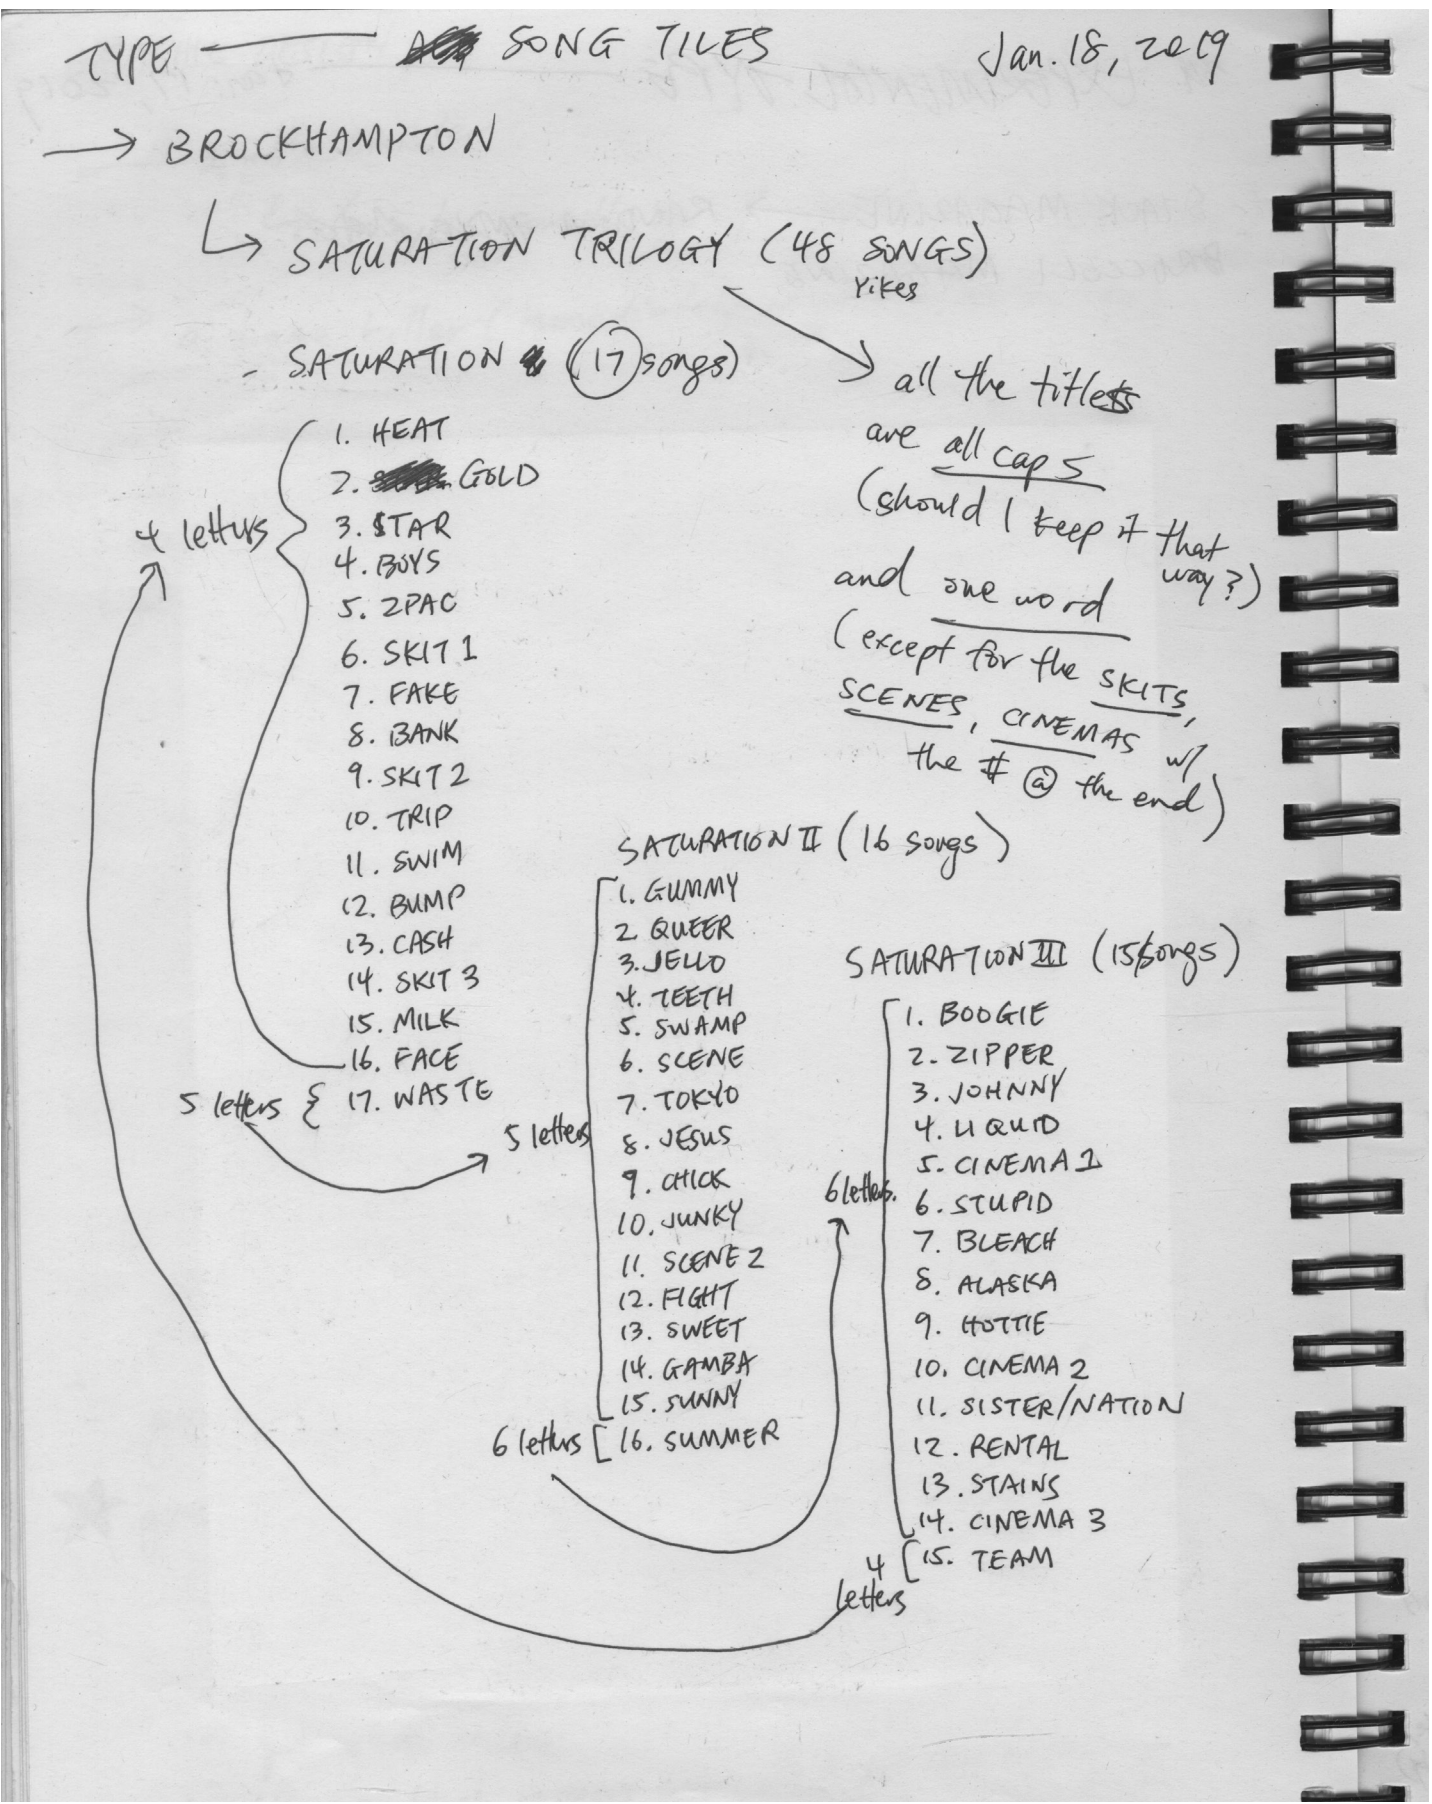 TYPE — SONG TILES Jan. 18, 2019
→ BROCKHAMPTON
↳ SATURATION TRILOGY (48 SONGS)
Yikes
- SATURATION (17 songs)
4 letters
1. HEAT
2. GOLD
3. STAR
4. BOYS
5. 2PAC
6. SKIT 1
7. FAKE
8. BANK
9. SKIT 2
10. TRIP
11. SWIM
12. BUMP
13. CASH
14. SKIT 3
15. MILK
16. FACE
5 letters { 17. WASTE
all the titles
are all caps
(should I keep it that
way?)
and one word
(except for the SKITS,
SCENES, CINEMAS w/
the # @ the end)
SATURATION II (16 songs)
5 letters
1. GUMMY
2. QUEER
3. JELLO
4. TEETH
5. SWAMP
6. SCENE
7. TOKYO
8. JESUS
9. CHICK
10. JUNKY
11. SCENE 2
12. FIGHT
13. SWEET
14. GAMBA
15. SUNNY
6 letters [ 16. SUMMER
SATURATION III (15 songs)
6 letters.
1. BOOGIE
2. ZIPPER
3. JOHNNY
4. LIQUID
5. CINEMA 1
6. STUPID
7. BLEACH
8. ALASKA
9. HOTTIE
10. CINEMA 2
11. SISTER/NATION
12. RENTAL
13. STAINS
14. CINEMA 3
4 [ 15. TEAM
letters